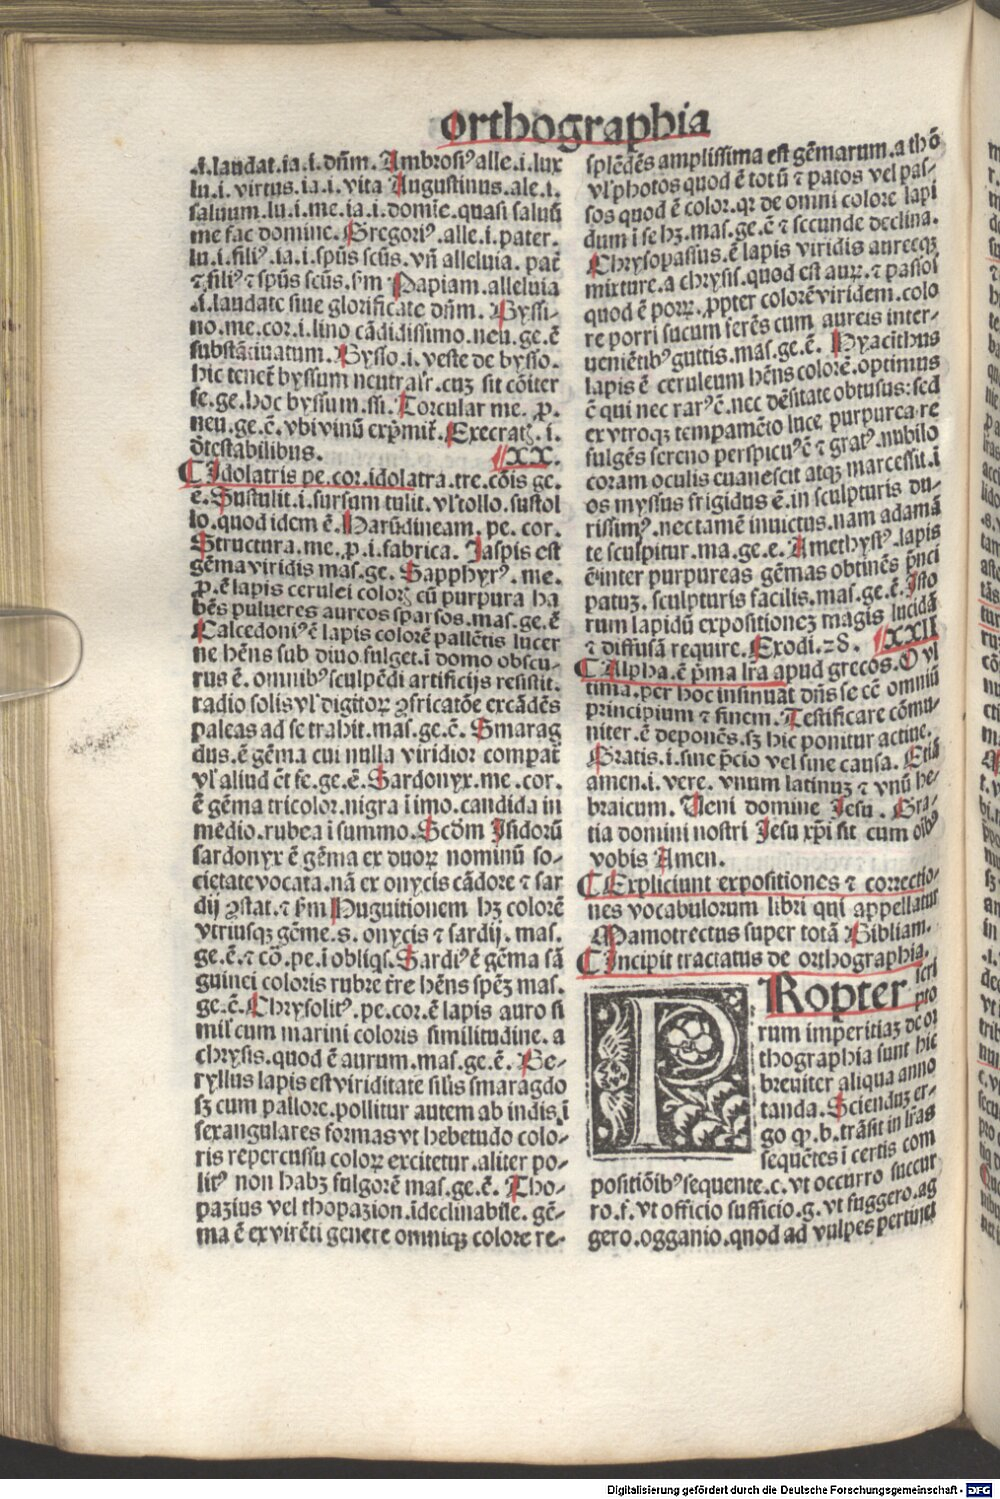 orthographia
.i.laudat.ia.i.dñm. Ambrosiꝰ alle.i.lux
lu.i.virtus.ia.i.vita Augustinus.ale.i.
saluum.lu.i.me.ia.i.domie.quasi saluū
me fac domine. Gregoriꝰ.alle.i.pater.
lu.i.filiꝰ.ia.i.spūs scūs.vñ alleluia.pat̄
⁊ filiꝰ ⁊ spūs scūs. s̄m Papiam.alleluia
.i.laudate siue glorificate dñm. Byssi-
no.me.cor.i.lino cādidissimo.neu.ge.ē
substātiuatum. Bysso.i.veste de bysso.
hic tenet̄ byssum neutralr̄.cuȝ sit cōiter
fe.ge.hoc byssum.ssi. Torcular me. ꝓ.
neu.ge.ē.vbi vinū exp̄mit̄. Execratꝭ.i.
detestabilibus. XX.
Idolatris pe.cor.idolatra.tre.cōis ge.
ē. Sustulit.i.sursum tulit.vl̓ tollo.sustol
lo.quod idem ē. Harūdineam.pe.cor.
Structura.me.ꝓ.i.fabrica. Jaspis est
gēma viridis mas.ge. Sapphyrꝰ.me.
ꝓ.ē lapis cerulei colorꝭ cū purpura ha
bēs pulueres aureos sparsos.mas.ge.ē
Calcedoniꝰ ē lapis colorē pallētis lucer
ne hēns sub diuo fulget.ī domo obscu-
rus ē.omnibꝰ sculpēdi artificijs resistit.
radio solis vl̓ digitoꝝ ↄfricatōe excādēs
paleas ad se trahit.mas.ge.ē. Smarag
dus.ē gēma cui nulla viridior compat̄
vl̓ aliud c̄t fe.ge.ē. Sardonyx.me.cor.
ē gēma tricolor.nigra ī imo.candida in
medio.rubea ī summo. Scd̄m Isidorū
sardonyx ē gēma ex duoꝝ nominū so-
cietate vocata.nā ex onycis cādore ⁊ sar
dij ↄstat.⁊ s̄m Huguitionem hȝ colorē
vtriusqȝ gēme.s.onycis ⁊ sardij.mas.
ge.ē.⁊ cō.pe.ī obliqs. Sardiꝰ ē gēma sā
guinei coloris rubre tr̄e hēns spēȝ mas.
ge.ē. Chrysolitꝰ.pe.cor.ē lapis auro si
mil̓ cum marini coloris similitudine.a
chrysis.quod ē aurum.mas.ge.ē. Be-
ryllus lapis est viriditate silīs smaragdo
sȝ cum pallore.pollitur autem ab indis.ī
sexangulares formas vt hebetudo colo-
ris repercussu coloꝝ excitetur.aliter po-
litꝰ non habȝ fulgorē mas.ge.ē. Tho-
pazius vel thopazion.īdeclinabile.gē-
ma ē ex virēti genere omniqȝ colore re-
splēdēs amplissima est gēmarum.a thō
vl̓ photos quod ē totū ⁊ patos vel pas-
sos quod ē color.qr de omni colore lapi
dum ī se hȝ.mas.ge.ē ⁊ secunde declina.
Chrysopassus.ē lapis viridis aureeqȝ
mixture.a chrysis.quod est auꝝ.⁊ passol
quod ē porꝝ.ꝓpter colorē viridem.colo
re porri sucum ferēs cum aureis inter-
ueniētibꝰ guttis.mas.ge.ē. Hyacinthus
lapis ē ceruleum hēns colorē.optimus
ē qui nec rarꝰ ē.nec dēsitate obtusus:sed
ex vtroqȝ tempamēto luce purpurea re
fulgēs sereno perspicuꝰ ē ⁊ gratꝰ.nubilo
coram oculis euanescit atqȝ marcessit.ī
os myssus frigidus ē.in sculpturis du-
rissimꝰ.nec tamē inuictus.nam adamā
te sculpitur.ma.ge.e. Amethystꝰ.lapis
ē inter purpureas gēmas obtinēs p̄nci
patuȝ.sculpturis facilis.mas.ge.ē. Isto
rum lapidū expositioneȝ magis lucidā
⁊ diffusā require. Exodi.28. XXII
Alpha.ē p̄ma lr̄a apud grecos.O vl
tima.per hoc insinuat dn̄s se eē omniū
principium ⁊ finem. Testificare cōmu-
niter.ē deponēs.sȝ hic ponitur actiue.
Gratis.i.sine p̄cio vel sine causa. Etiā
amen.i.vere.vnum latinuȝ ⁊ vnū he-
braicum. Veni domine Jesu. Gra-
tia domini nostri Jesu xp̄i sit cum oībꝰ
vobis Amen.
Expliciunt expositiones ⁊ correctio-
nes vocabulorum libri qui appellatur
Mamotrectus super totā Bibliam.
Incipit tractatus de orthographia.
PRopter scri
pto
rum imperitiaȝ de or
thographia sunt hic
breuiter aliqua anno
tanda. Sciendūȝ er-
go ꝙ.b.trāsit in lr̄as
sequētes ī certis com
positiōibꝰ sequente.c.vt occurro succur
ro.f.vt officio sufficio.g.vt suggero.ag
gero.ogganio.quod ad vulpes pertinet
Digitalisierung gefördert durch die Deutsche Forschungsgemeinschaft - DFG